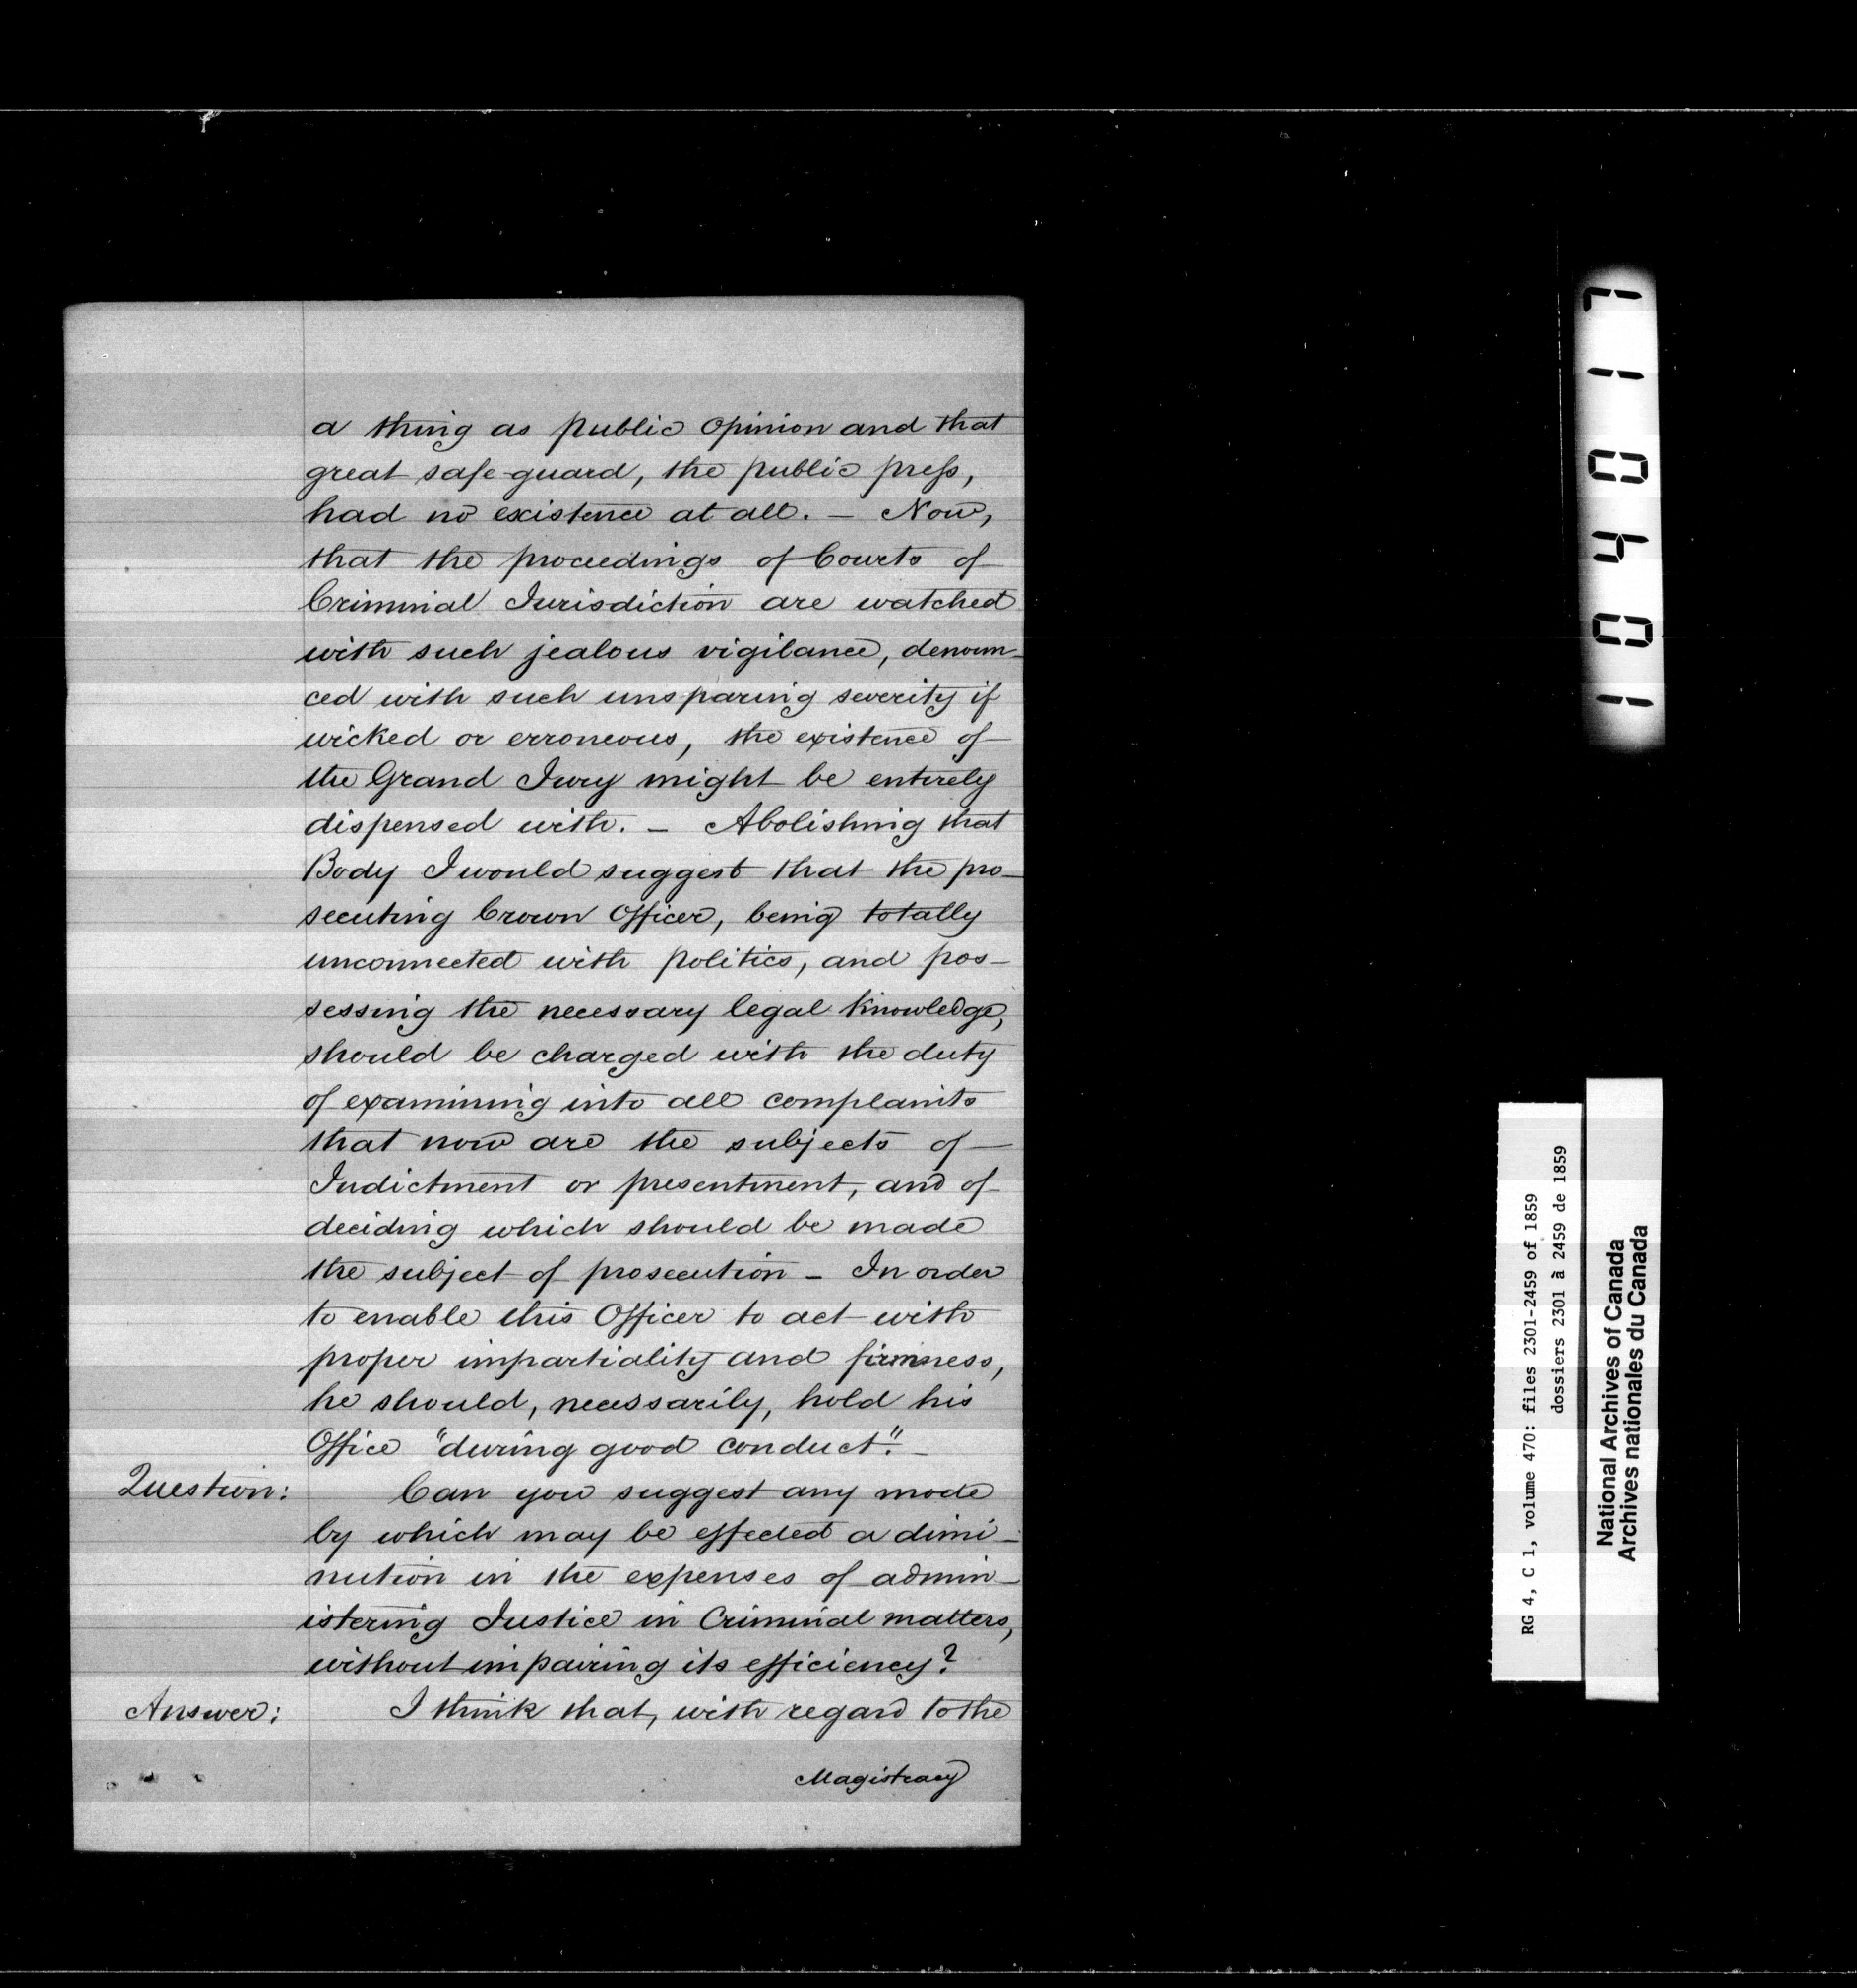 a thing as public opinion and that
great safe-guard, the public press,
had no existence at all. — Now,
that the proceedings of Courts of
Criminal Jurisdiction are watched
with such jealous vigilance, denoun-
ced with such unsparing severity if
wicked or erroneous, the existence of
the Grand Jury might be entirely
dispensed with. — Abolishing that
Body I would suggest that the pro-
secuting Crown Officer, being totally
unconnected with politics, and pos-
sessing the necessary legal knowledge,
should be charged with the duty
of examining into all complaints
that now are the subjects of
Indictment or presentment, and of
deciding which should be made
the subject of prosecution — In order
to enable this Officer to act with
proper impartiality and firmness,
he should, necessarily, hold his
Office "during good conduct". —
Question: Can you suggest any mode
by which may be effected a dimi-
nution in the expenses of admin-
istering Justice in Criminal matters,
without impairing its efficiency?
Answer: I think that, with regard to the
Magistracy
104017
RG 4, C 1, volume 470: files 2301-2459 of 1859
dossiers 2301 à 2459 de 1859
National Archives of Canada
Archives nationales du Canada